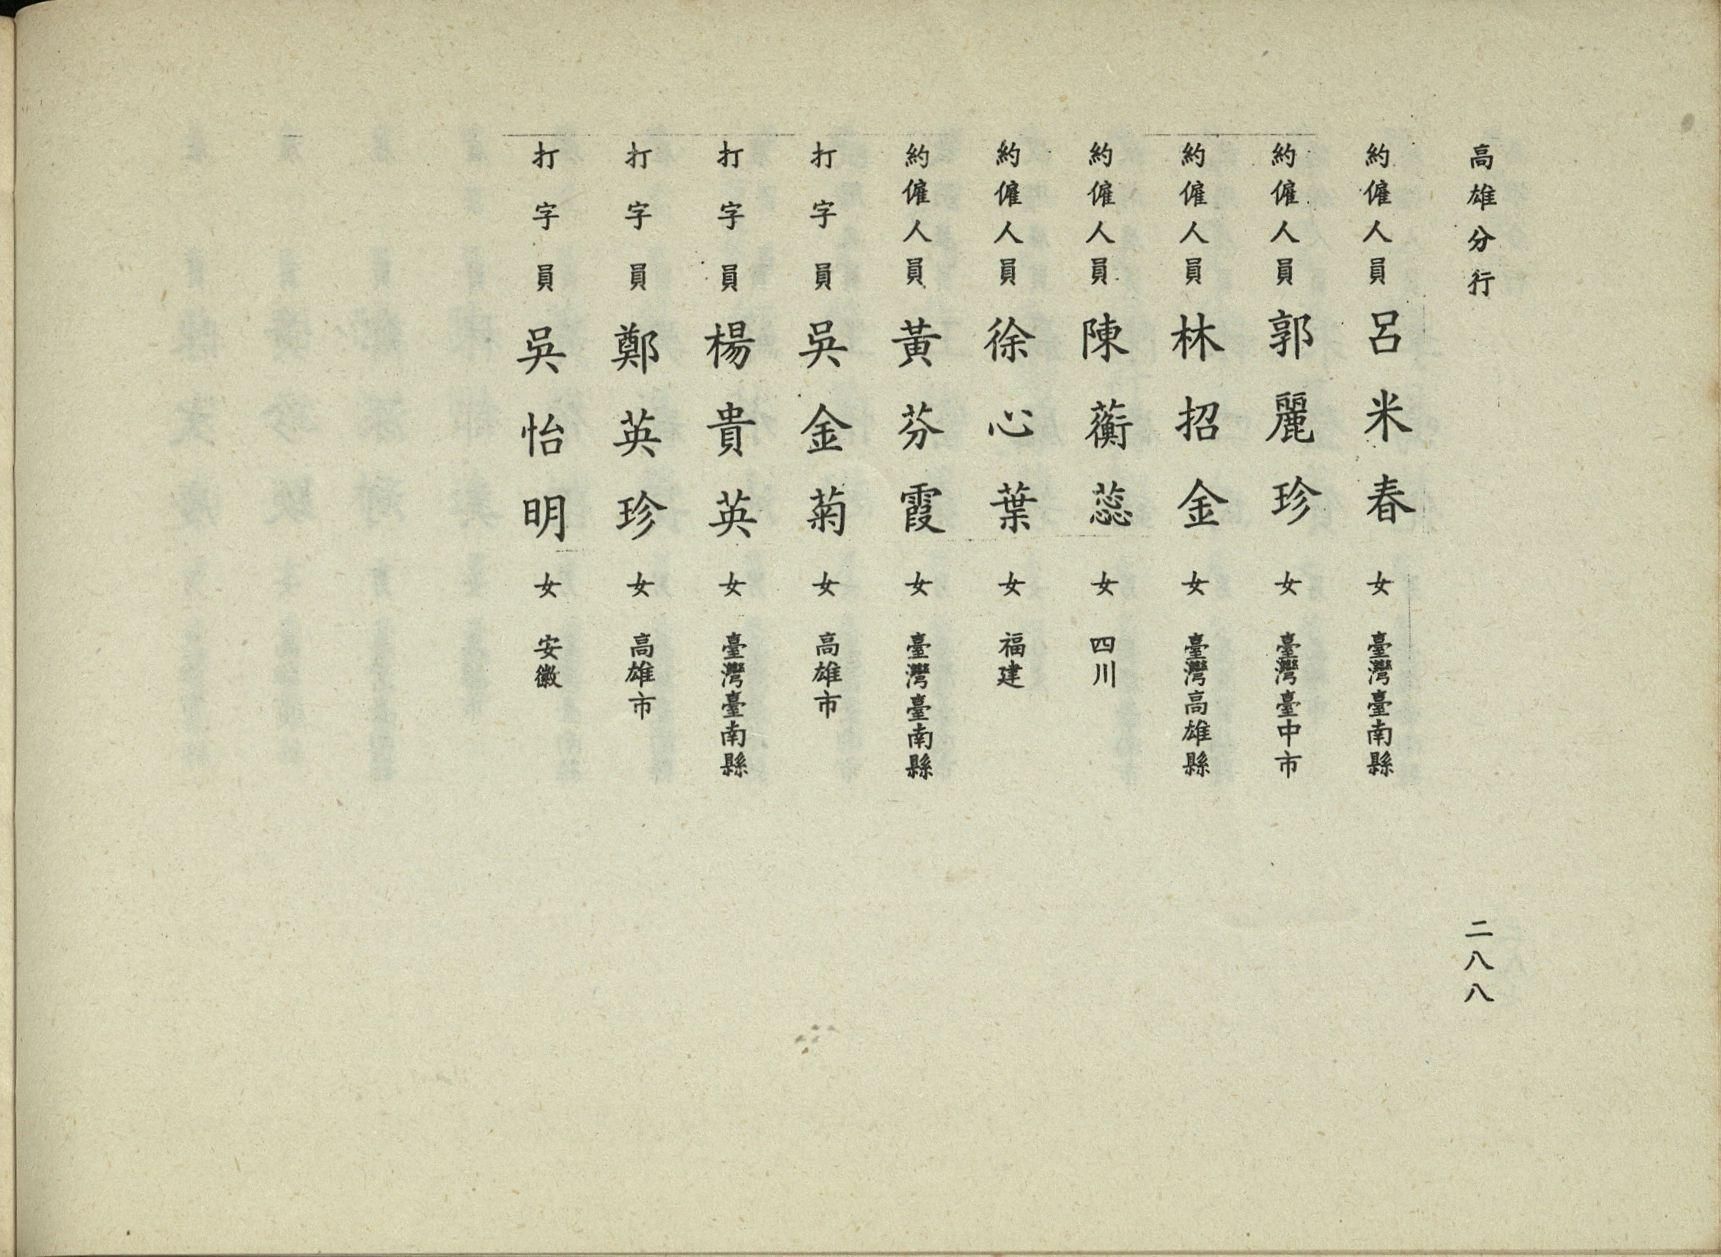 高雄分行
二八八
約僱人員 呂米春 女 臺灣臺南縣
約僱人員 郭麗珍 女 臺灣臺中市
約僱人員 林招金 女 臺灣高雄縣
約僱人員 陳蘅蕊 女 四川
約僱人員 徐心葉 女 福建
約僱人員 黃芬霞 女 臺灣臺南縣
打字員 吳金菊 女 高雄市
打字員 楊貴英 女 臺灣臺南縣
打字員 鄭英珍 女 高雄市
打字員 吳怡明 女 安徽